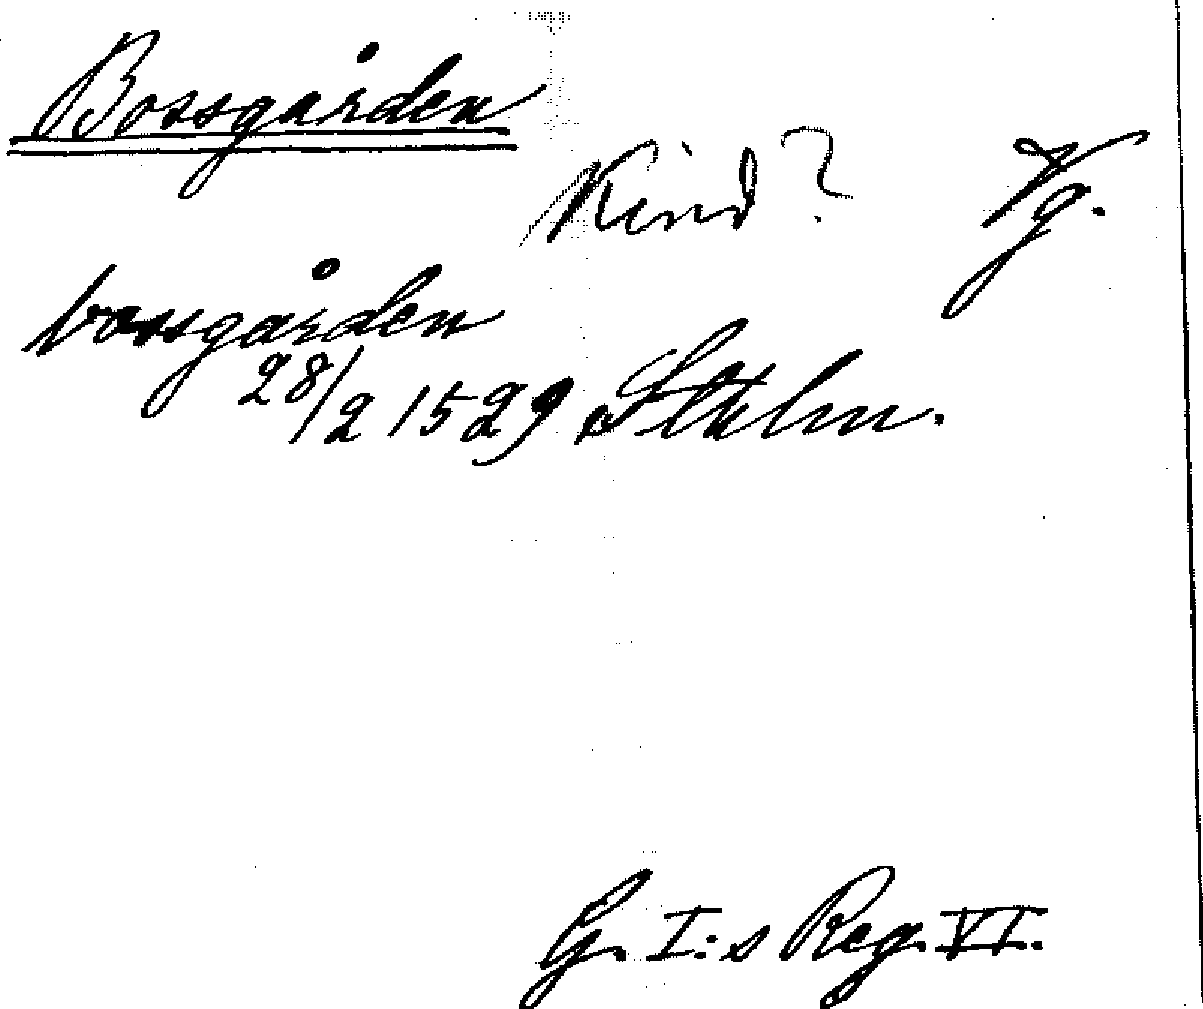 Bossgården
Kind? Vg.
bossgården
28/2 1529 Sthlm.
G. I:s Reg. VI.